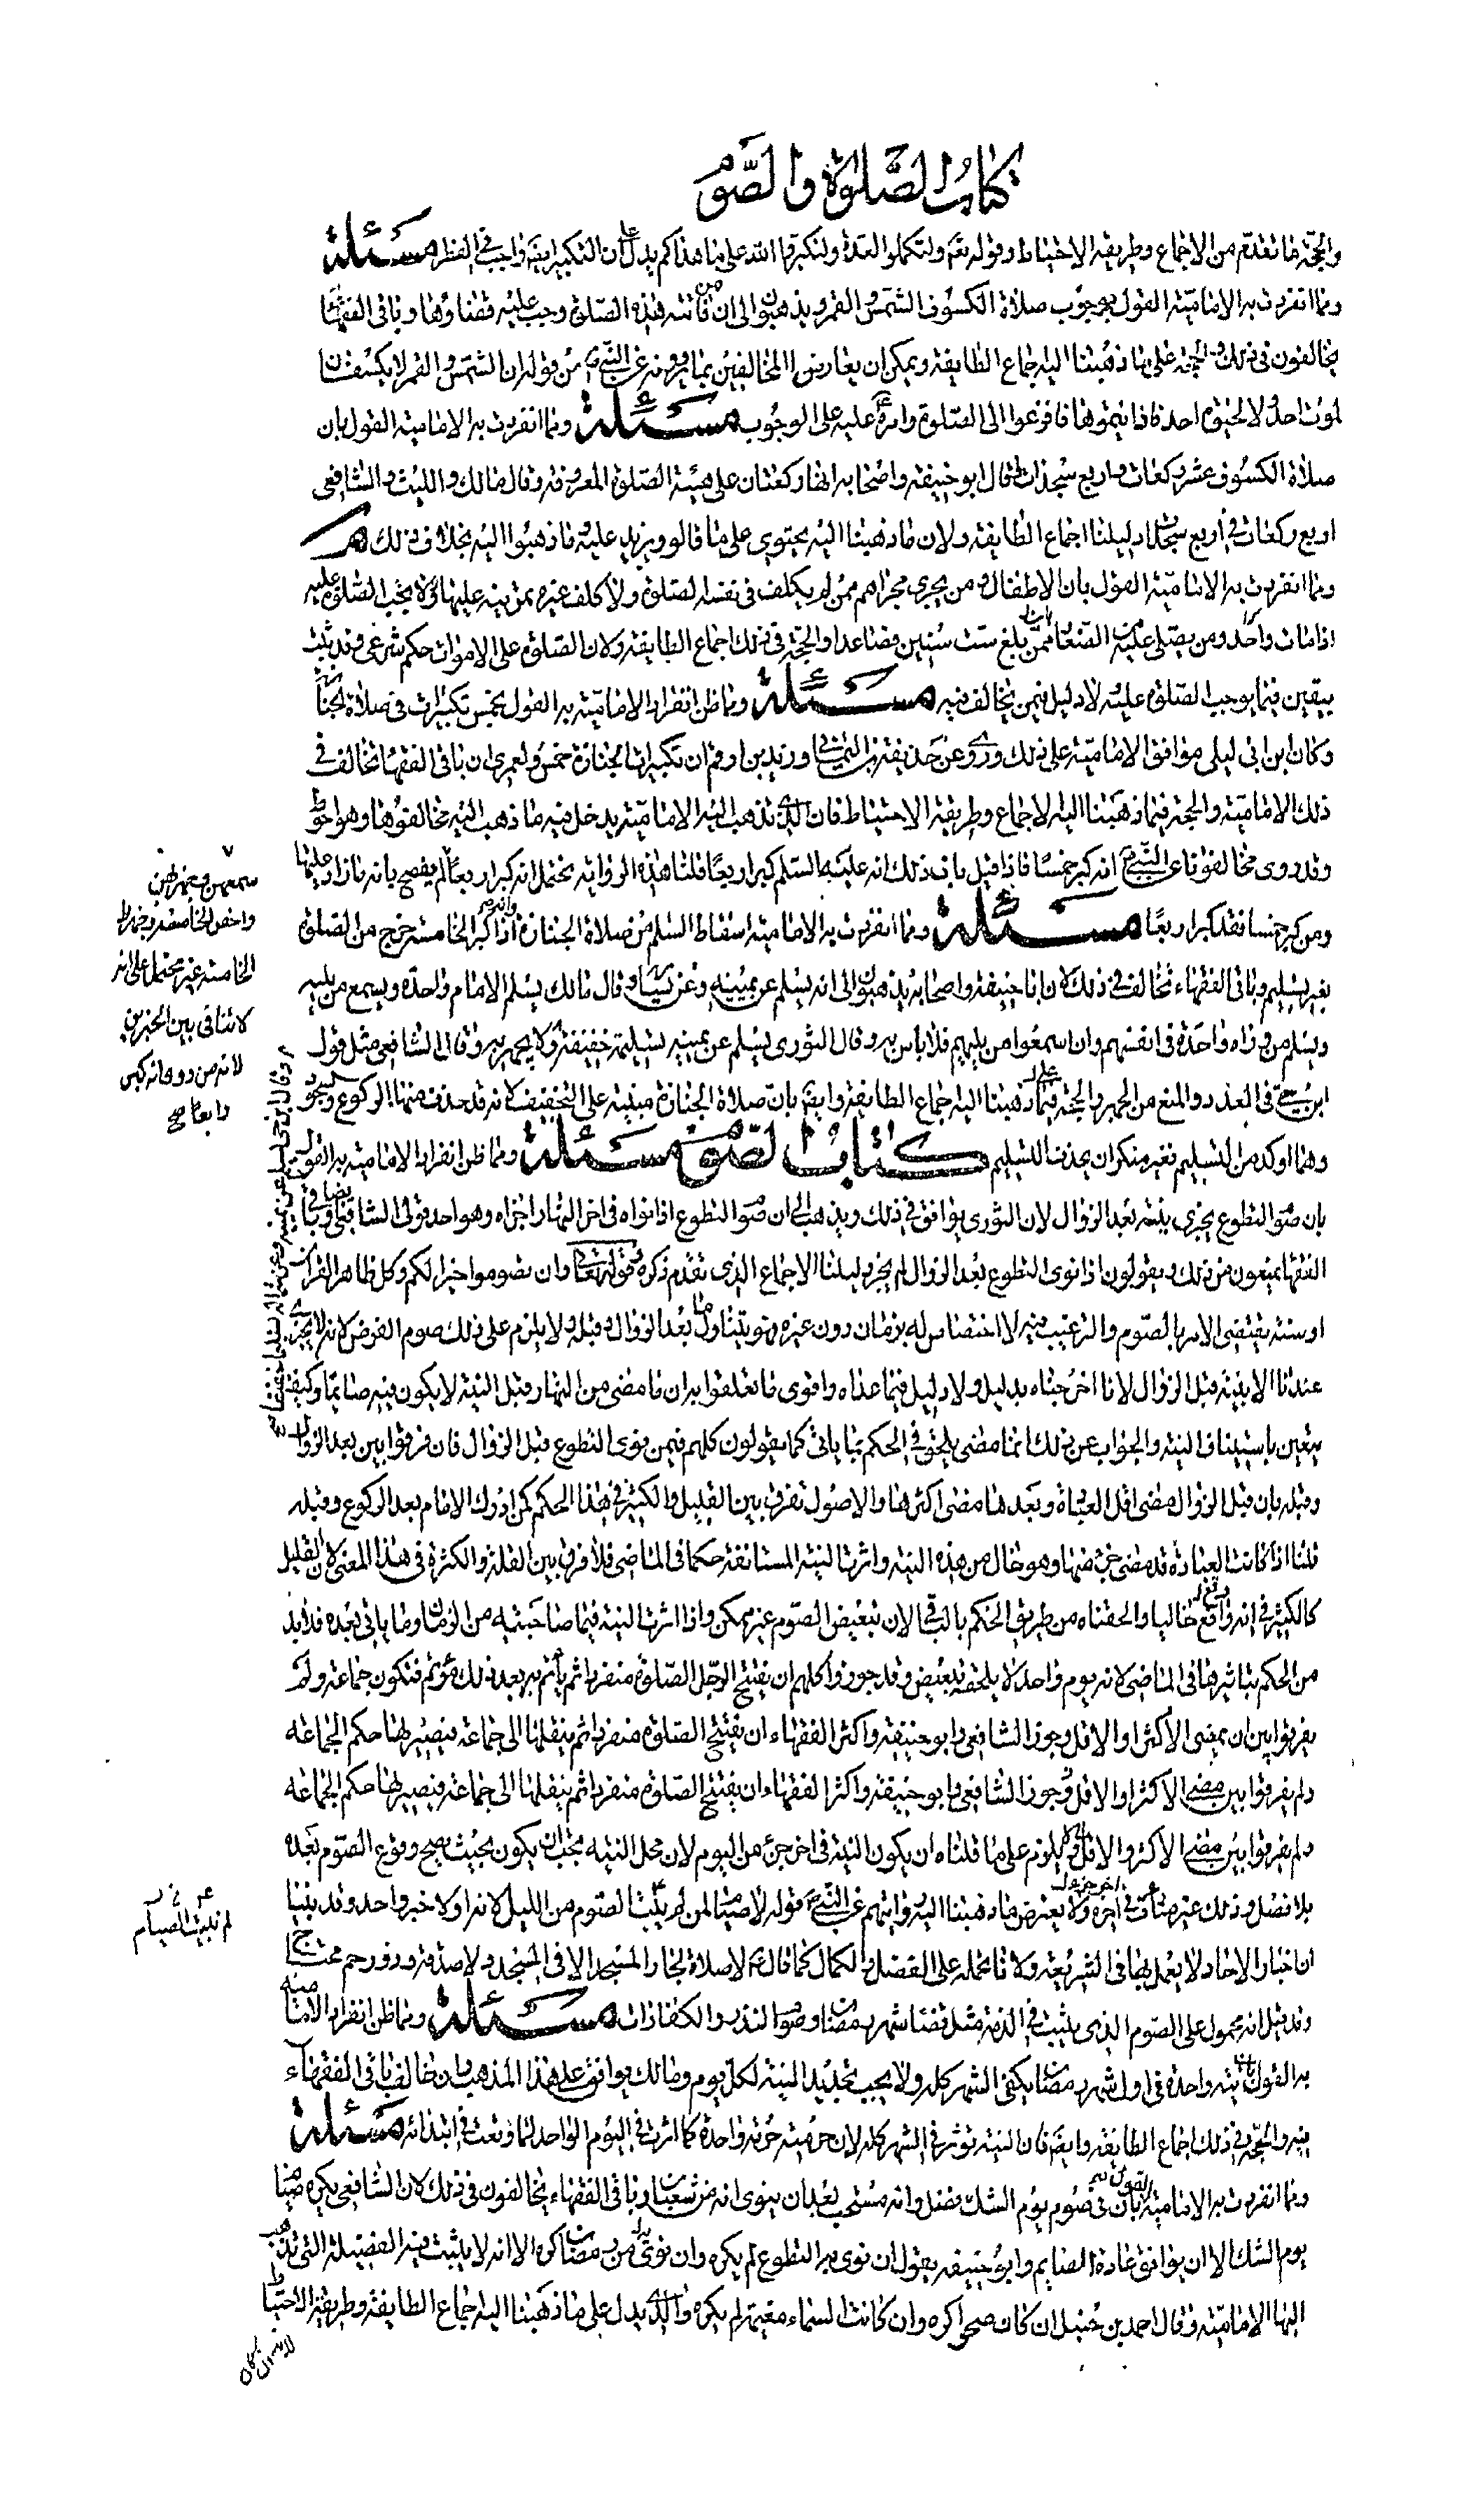 كتاب الصلوة والصوم
والحجة ما تقدم من الاجماع وطريقة الاحتياط وقوله تعم ولتكملوا العدة ولتكبروا الله على ما هداكم يدل على ان التكبير ايضا واجب في الفطر مسئلة
ومما انفردت به الامامية القول بوجوب صلاة الكسوف الشمس والقمر ويذهبون الى ان من فاتته هذه الصلوة وجب عليه قضاؤها وباقي الفقهاء
يخالفون في ذلك والحجة على ما ذهبنا اليه اجماع الطايفة ويمكن ان يعارض المخالفين بما يروونه عن النبي من قوله ان الشمس والقمر لا يكسفان
لموت احد ولا لحيوة احد فاذا رايتموها فافزعوا الى الصلوة وامره عليه على الوجوب مسئلة ومما انفردت به الامامية القول بان
صلاة الكسوف عشر ركعات واربع سجدات وقال ابو حنيفة واصحابه انها ركعتان على هيئة الصلوة المعروفة وقال مالك والليث والشافعي
اربع ركعات في اربع سجدات دليلنا اجماع الطايفة ولان ما ذهبنا اليه يحتوي على ما قالوه ويزيد عليه وما ذهبوا اليه بخلاف ذلك
ومما انفردت به الامامية القول بان الاطفال ومن يجري مجراهم ممن لم يكلف في نفسه الصلوة ولا كلف غيره تمرينه عليها لا يجب الصلوة عليه
اذا مات واحد ومن يصلى عليه من الصغار ممن بلغ ست سنين فصاعدا والحجة في ذلك اجماع الطايفة ولان الصلوة على الاموات حكم شرعي وقد ثبت
بيقين فيما يوجب الصلوة عليه ولا دليل فيمن يخالف فيه مسئلة ومما ظن انفراد الامامية به القول بخمس تكبيرات في صلاة الجنازة
وكان ابن ابي ليلى موافق الامامية على ذلك وروي عن حذيفة بن اليماني وزيد بن ارقم ان تكبيرات الجنازة خمس ولعمري ان باقي الفقهاء مخالف في
ذلك الامامية والحجة فيما ذهبنا اليه الاجماع وطريقة الاحتياط فان الذي تذهب اليه الامامية يدخل فيه ما ذهب اليه مخالفوها وهو احوط
وقد روى مخالفونا عن النبي انه كبر خمسا فاذا قيل بازاء ذلك انه عليه السلم كبر اربعا قلنا هذه الرواية يحتمل انه كبر اربعا لم يفصح بانه ما زاد عليها
ومن كبر خمسا فقد كبر اربعا مسئلة ومما انفردت به الامامية اسقاط السلم من صلاة الجنازة وانه اذا كبر الخامسة خرج من الصلوة
بغير تسليم وباقي الفقهاء مخالف في ذلك لان ابا حنيفة واصحابه يذهبون الى انه يسلم عن يمينه وعن يساره وقال مالك يسلم الامام واحدة ويسمع من يليه
ويسلم من وراه واحدة في انفسهم وان سمعوا من يليهم فلا باس به وقال الثوري يسلم عن يمينه تسليمة خفيفة ولا يجهر به وقال الشافعي مثل قول
ابن حي في العدد والمنع من الجهر والحجة فيما ذهبنا اليه اجماع الطايفة وايضا بان صلاة الجنازة مبنية على التخفيف لانه قد حذف منها الركوع والسجود
وهما اوكد من التسليم فغير منكر ان يحذف التسليم كتاب الصوم مسئلة ومما ظن انفراد الامامية به القول
بان صوم التطوع يجزي بنية بعد الزوال لان الثوري يوافق في ذلك ويذهب الى ان صوم التطوع اذا نواه في اخر النهار اجزاه وهو احد قولي الشافعي وباقي
الفقهاء يمنعون من ذلك ويقولون اذا نوى التطوع بعد الزوال لم يجز دليلنا الاجماع الذي تقدم ذكره وقوله تعالى وان تصوموا خير لكم وكل ظاهر القران
او سنة يقتضي الامر بالصوم والترغيب فيه لا اختصاص له بزمان دون غيره فهو يتناول ما بعد الزوال وقبله ولا يلزم على ذلك صوم الفرض لانه لا يجزي
عندنا الا بنية قبل الزوال لانا اخرجناه بدليل ولا دليل فيما عداه واقوى ما تعلقوا به ان ما مضى من النهار وقبل النية لا يكون فيه صائما وكيف
يتعين باستيناف النية والجواب عن ذلك ان ما مضى يلحق في الحكم بما ياتي كما يقولون كلهم فيمن نوى التطوع قبل الزوال فان فرقوا بين بعد الزوال
وقبله بان قبل الزوال مضى اقل العبادة وبعدها مضى اكثرها والاصول تفرق بين القليل والكثير في هذا الحكم كمن ادرك الامام بعد الركوع وقبله
قلنا اذا كانت العبادة قد مضى جزء منها وهو خال من هذه النية واثرت النية المستانفة حكما في الماضي فلا فرق بين القلة والكثرة في هذا المعنى لان القليل
كالكثير في انه واقع خاليا والحقناه من طريق الحكم بالباقي لان تبعيض الصوم غير ممكن واذا اثرت النية فيما صاحبته من الزمان وما ياتي بعده فلا بد
من الحكم بتاثيرها في الماضي لانه يوم واحد لا يلحقه تبعيض وقد جوزوا كلهم ان يفتتح الرجل الصلوة منفردا ثم ياتم به بعد ذلك مؤتم فتكون جماعة ولم
يفرقوا بين ان يمضى الاكثر او الاقل وجوز الشافعي وابو حنيفة واكثر الفقهاء ان يفتتح الصلوة منفردا ثم ينقلها الى جماعة فيصير لها حكم الجماعة
ولم يفرقوا بين مضي الاكثر او الاقل وجوز الشافعي وابو حنيفة واكثر الفقهاء ان يفتتح الصلوة منفردا ثم ينقلها الى جماعة فيصير لها حكم الجماعة
ولم يفرقوا بين مضي الاكثر والاقل ولا يلزم على ما قلناه ان يكون النية في اخر جزء من اليوم لان محل النية يجب ان يكون بحيث يصح وقوع الصوم بعده
بلا فصل وذلك غير متات في اخر جزء ولا يعترض ما ذهبنا اليه روايتهم عن النبي قوله لا صيام لمن لم يبت الصوم من الليل لانه اولا خبر واحد وقد بينا
ان اخبار الاحاد لا يعمل بها في الشريعة ولانا نحمله على الفضل والكمال كما قال لا صلاة لجار المسجد الا في المسجد ولا صدقة وذو رحم محتاج
وقد قيل انه محمول على الصوم الذي يثبت في الذمة مثل قضاء شهر رمضان وصوم النذر والكفارات مسئلة ومما ظن انفراد الامامية
به القول بان نية واحدة في اول شهر رمضان يكفي الشهر كله ولا يجب تجديد النية لكل يوم ومالك يوافق على هذا المذهب وان خالف باقي الفقهاء
فيه والحجة في ذلك اجماع الطايفة وايضا فان النية تؤثر في الشهر كله لان حرمته حرمة واحدة كما اثرت في اليوم الواحد لما وقعت في ابتدائه مسئلة
ومما انفردت به الامامية القول بان في صوم يوم الشك فضل وانه مستحب بعد ان ينوى انه من شعبان وباقي الفقهاء يخالفون في ذلك لان الشافعي يكره صيام
يوم الشك الا ان يوافق عادة الصايم وابو حنيفة يقول ان نوى به التطوع لم يكره وان نوى به من رمضان اكره الا انه لا يثبت فيه الفضيلة التي تذهب
اليها الامامية وقال احمد بن حنبل ان كان صحوا كره وان كانت السماء مغيمة لم يكره والذي يدل على ما ذهبنا اليه اجماع الطايفة وطريقة الاحتياط
الخامسة غير محتمل على انه
لا تنافي بين الخبرين
لانه من
رابعا صح
لم يبيت الصيام